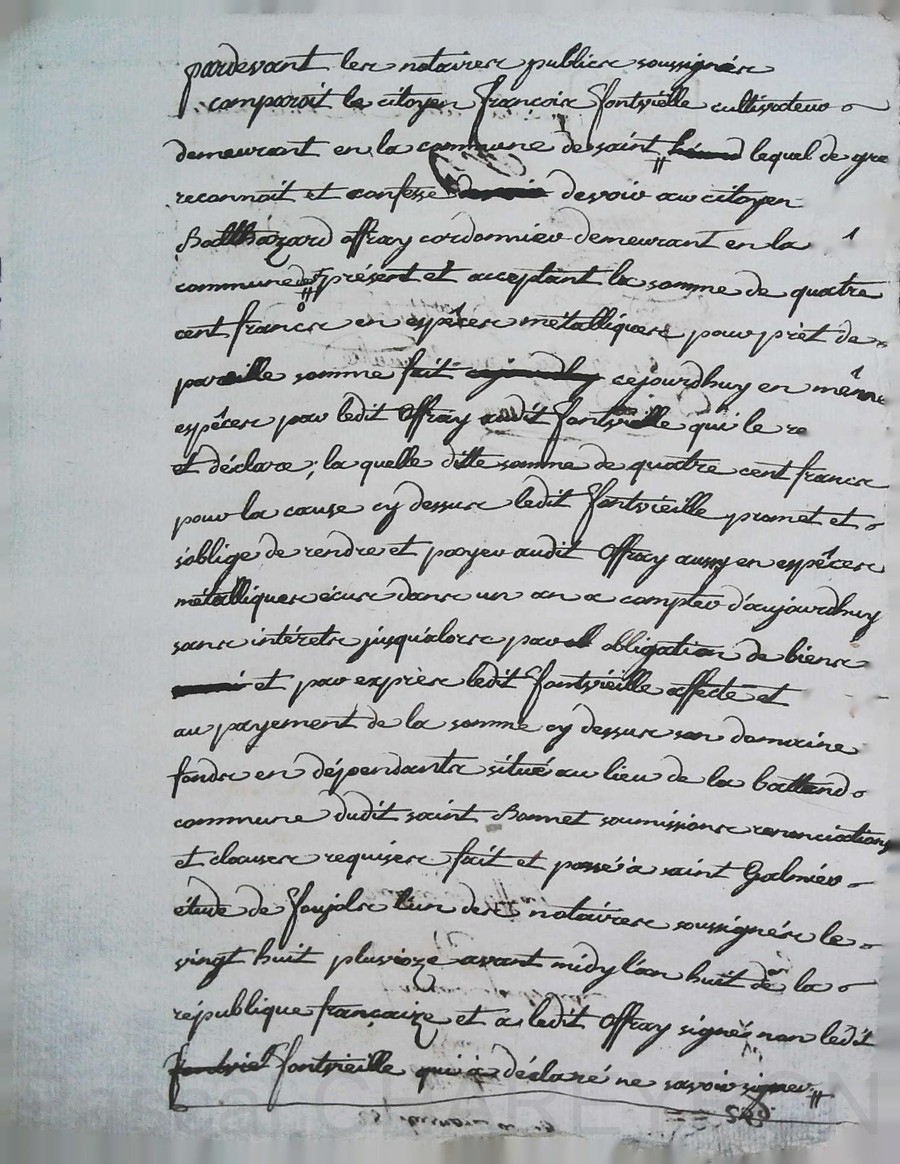 pardevant les notaires publics soussignés
comparoit le citoyen françois fontvieille cultivateur
demeurant en la commune de saint lequel de gre
reconnoit et confesse devoir au citoyen
Balthazard offray cordonnier demeurant en la
commune de présent et acceptant la somme de quatre
cent francs en espêces métalliques pour prèt de
pareille somme fait aujourdhuy cejourdhuy en même
espêces par ledit Offray audit fontvieille qui le re
et déclare ; la quelle ditte somme de quatre cent francs
pour la cause cy dessus ledit fontvieille promet et
s'oblige de rendre et payer audit Offray aussy en espêces
métalliques écus dans un an a compter d'aujourdhuy
sans intérets jusqu'alors par obligation de biens
et par exprès ledit fontvieille affecte et
au payement de la somme cy dessus son domaine
fonds en dépendants situé au lieu de la battand
commune dudit saint Bonnet soumissions renonciations
et clauses requises fait et passé à saint Galmier
étude de foujols l'un des notaires soussignés le
vingt huit pluvioze avant midy l'an huit de la
république françaize et a ledit Offray signé non ledit
fontvieille qui a déclaré ne savoir signer